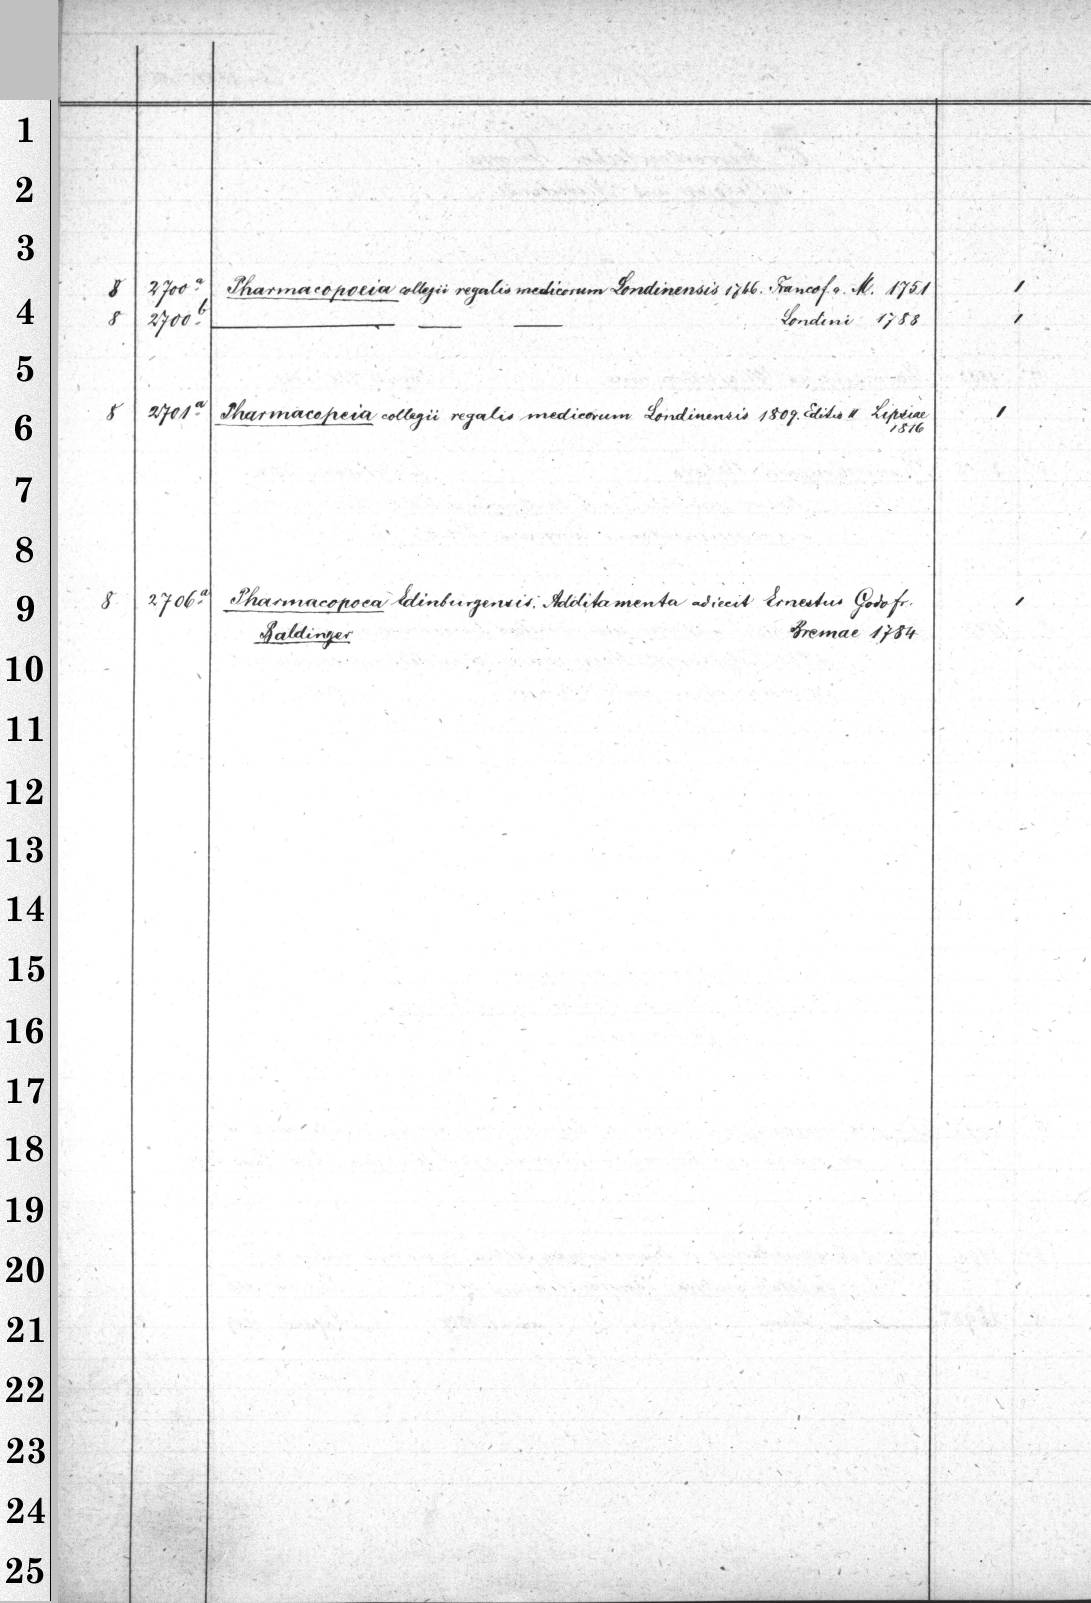 1
2
3
8 2700a Pharmacopoeia collegii regalis medicorum Londinensis 1746. Francof. a. M. 1751 1
4
8 2700b Londini 1788 1
5
8 2701a Pharmacopeia collegii regalis medicorum Londinensis 1809. Editio II Lipsiae 1
6
1816
7
8
8 2706a Pharmacopoea Edinburgensis. Additamenta adiecit Ernestus Godofr. 1
9
Baldinger Bremae 1784
10
11
12
13
14
15
16
17
18
19
20
21
22
23
24
25